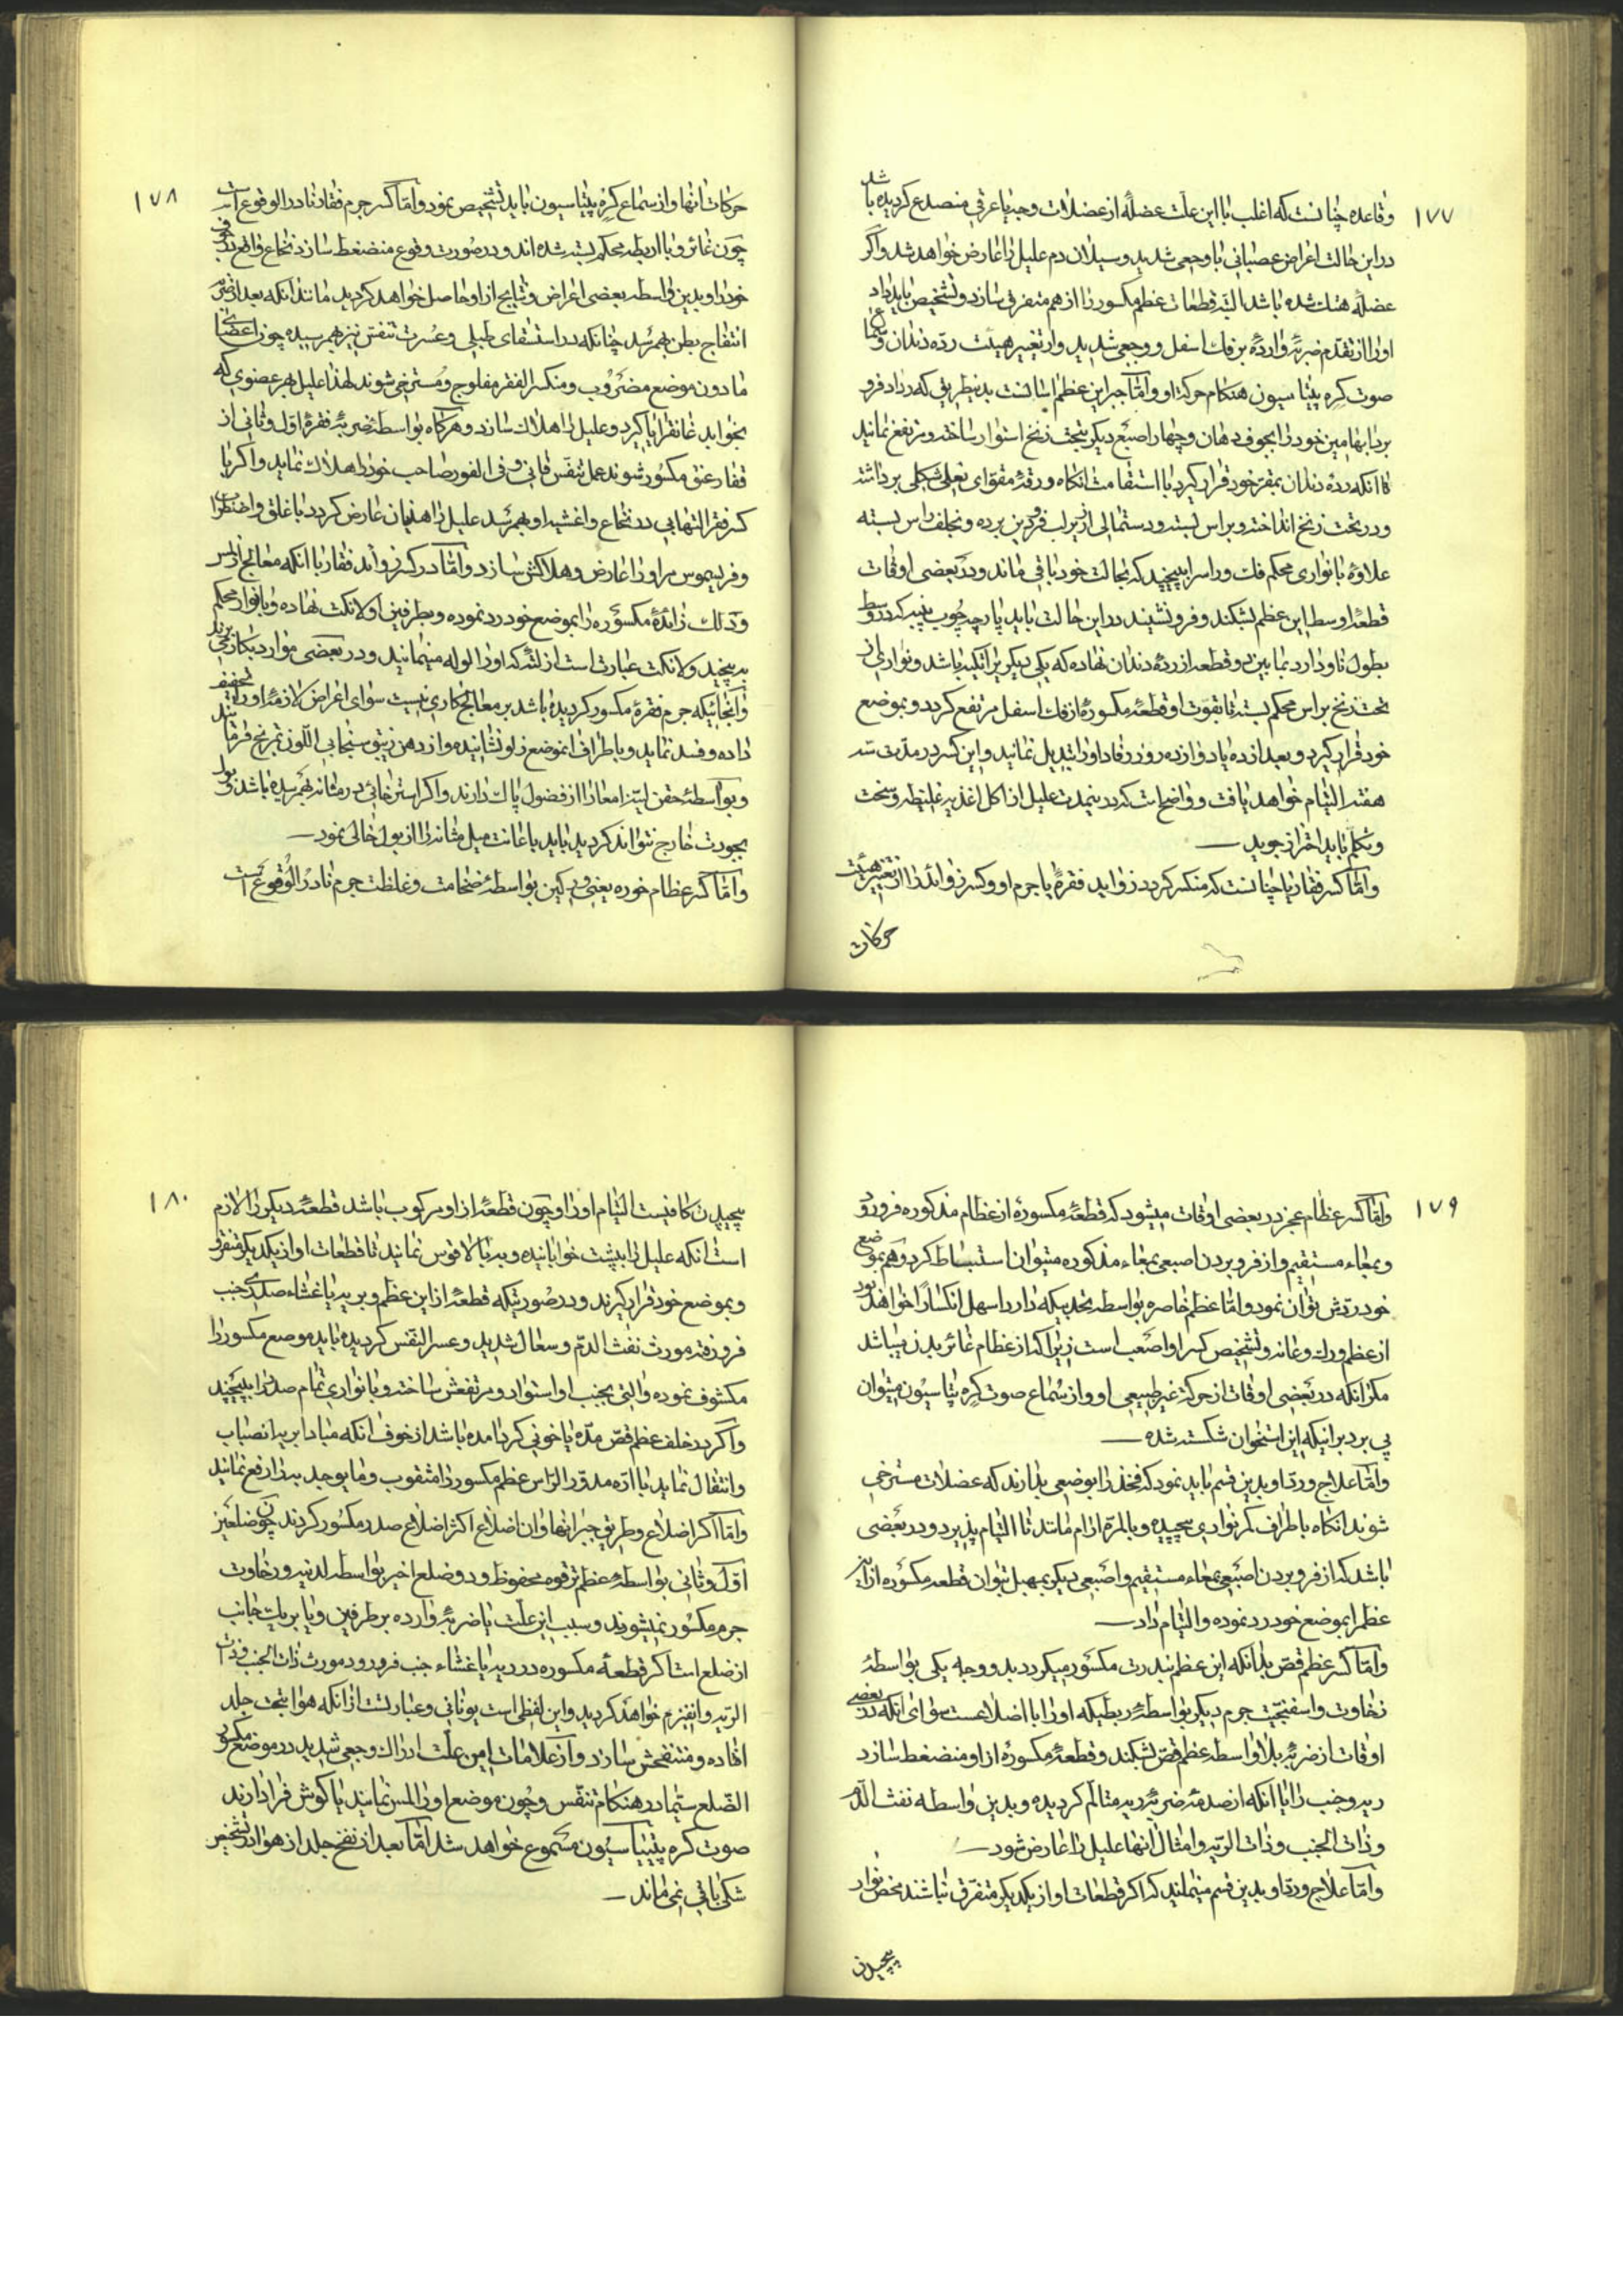 ۱۷۷
وقاعده چنانست که اغلب با این علت عضله از عضلات وجنه یا عرقی منصدع کردیده باشد
در این حالت اعراض عصبانی با وجعی شدید و سیلان دم علیل را عارض خواهد شد و اگر
عضله هتک شده باشد البته قطعات عظم مکسور را از هم متفرق سازد و تشخیص باید داد
او را از تقدم ضربهٔ وارده بر فک اسفل و وجعی شدید و از تغییر هیئت ردهٔ دندان و سماع
صوت کره پیتاسیون هنکام حرکت او و اما جبر این عظم اسانست بدینطریق که رداد فرو
برد ابهامین خود را بجوف دهان و چهار اصبع دیکر بتحت زنخ استوار ساخته و مرتفع نمانید
تا انکه ردهٔ دندان بمقر خود قرار کیرد با استقامت انکاه ورقهٔ مقوای نعلی شکلی برداشته
و در تحت زنخ انداخته و براس بسته و دستمالی از زیر لب فرودین برده و بخلف راس بسته
علاوه بانواری محکم فک و راس را بپیچید که بحالت خود باقی ماند و در بعضی اوقات
قطعهٔ اوسط این عظم بشکند و فرو نشیند در این حالت باید پارچه چوب پنبه که در وسط
بطول ناو دارد بما بین دو قطعه از ردهٔ دندان نهاده که یکی دیکر برا تکیه باشد و نواری از
تحت زنخ براس محکم بسته تا بقوت او قطعهٔ مکسورهٔ از فک اسفل مرتفع کردد و بموضع
خود قرار کیرد و بعد از ده یا دوازده روز رفاد او را تبدیل نمانید و این کسر در مدت سه
هفته التیام خواهد یافت و واضحات که در بنمدت علیل از اکل اغذیه غلیظه و سخت
و تکلم باید احتراز جوید
و اما کسر فقار یا چنانست که منکسر کردد زواید فقرهٔ یا جرم او و کسر زواید را از تغییر هیئت
حرکات
۱۷۸
حرکات انها و از سماع کره پیتاسیون باید تشخیص نمود و اما کسر جرم فقار نادر الوقوع است
چون غائر و با اربطه محکم بسته شده اند و در صورت وقوع منضغط سازد نخاع واقع در
خود را و بدین واسطه بعضی اعراض و نتایج از او حاصل خواهد کردید مانند انکه بعد از
انتفاخ بطن بهم رسد چنانکه در استسقای طبلی و عسرت تنفس نیز بهم رسیده چون اعضای
مادون موضع مضروب و منکسر الفقر مفلوج و مسترخی شوند لهذا علیل بهر عضوی که
بخوابد غانقرایا کیرد و علیل را هلاک سازد و هرکاه بواسطهٔ ضربهٔ فقرهٔ اول و ثانی از
فقار عنق مکسور شوند عمل تنفس فانی و فی الفور صاحب خود را هلاک نماید و اکر با
کسر فقر التهابی در نخاع و اغشیه او بهم رسد علیل را هذیان عارض کردد با غلق و اضطراب
و فریسموس مر او را عارض و هلاکش سازد و اما در کسر زوائد فقار با انکه معالج از لمس
و دلک زائدهٔ مکسوره را بموضع خود رد نموده و بطرفین اولانکت نهاده و بانوار محکم
بپیچید ولانکت عبارت است از لتهٔ که او را لوله مینمانید و در بعضی موارد بکار میبرند
و انجائیکه جرم فقرهٔ مکسور کردیده باشد بر معالج کاری نیست سوای اعراض لازمهٔ او را تخفیف
داده و فسد نماید و باطراف انموضع زلو نشانیده و از دهن زیتق سنجابی اللون تمریخ فرمایند
و بواسطهٔ حقن لینه امعا را از فضول پاک دارند و اکر استرخائی در مثانه بهم رسیده باشد و بول
بجودت خارج نتواند کردید باید باعانت میل مثانه را از بول خالی نمود
و اما کسر عظام خوره یعنی ورکین بواسطهٔ ضخامت و غلظت جرم نادر الوقوع است
۱۷۹
و اما کسر عظام عجز در بعضی اوقات میشود که قطعهٔ مکسورهٔ از عظام مذکوره فرو رود
و بمعاء مستقیم و از فرو بردن اصبعی بمعاء مذکوره میتوان استنباط کرد و هم بموضع
خود ردش توان نمود و اما عظم خاصره بواسطهٔ تحدبیکه دارد اسهل انکسارا خواهد بود
از عظم ورک و عانه و تشخیص کسر او اصعب است زیرا که از عظام غائر بدن میباشد
مکر انکه در بعضی اوقات از حرکت غیر طبیعی او و از سماع صوت کره پیتاسیون میتوان
پی برد برانیکه این استخوان شکسته شده
و اما علاج و رد او بدین قسم باید نمود که فخذ را بوضعی بدارند که عضلات مسترخی
شوند انکاه باطراف کمر نواری پیچیده و بالمره ارام مانند تا التیام پذیرد و در بعضی
باشد که از فرو بردن اصبعی بمعاء مستقیم و اصبعی دیکر بمهبل بتوان قطعه مکسوره از این
عظم را بموضع خود رد نموده و التیام داد
و اما کسر عظم قص بدانکه این عظم بندرت مکسور میکردد بدو وجه یکی بواسطهٔ
رخاوت و اسفنجیت جرم دیکر بواسطهٔ ربطیکه او را با اضلاعست سوای انکه در بعضی
اوقات از ضربهٔ بلاواسطه عظم قص بشکند و قطعهٔ مکسورهٔ از او منضغط سازد
ریه و جنب را یا انکه از صدمهٔ ضربهٔ ریه متالم کردیده و بدین واسطه نفث الدم
و ذات الجنب و ذات الریه و امثال انها علیل را عارض شود
و اما علاج و رد او بدین قسم مینمایند که اکر قطعات او از یکدیکر متفرق نباشند محض نوار
پیچیدن
۱۸۰
پیچیدن کافیست التیام او را و چون قطعهٔ از او مرکوب باشد قطعهٔ دیکر را لازم
است انکه علیل را بپشت خوابانیده و بدنرا بالا قوس نمانید تا قطعات او از یکدیکر متفرق
و بموضع خود قرار کیرند و در صورتیکه قطعهٔ از این عظم و بریه یا غشاء صدری جنب
فرو رفته مورث نفث الدم و سعال شدید و عسر النفس کردیده باید موضع مکسور را
مکشوف نموده و التی بجنب او استوار و مرتفعش ساخته و بانواری تمام صدر را بپیچید
و اکر در خلف عظم قص مده یا خونی کرد امده باشد از خوف انکه مبادا بریه انصباب
و انتقال نماید با اره مدور الراس عظم مکسور را مثقوب و ما یوجد به را رفع نمانید
و اما کسر اضلاع و طریق جبر انها و ان اضلاع اکثر اضلاع صدر مکسور کردند چون ضلعین
اول و ثانی بواسطهٔ عظم ترقوه محفوظ و دو ضلع اخیر بواسطه لدنیه و رخاوت
جرم مکسور نمیشوند و سبب این علت یا ضربهٔ وارده بر طرفین و یا بریک جانب
از ضلع است اکر قطعهٔ مکسوره در ریه یا غشاء جنب فرو رود مورث ذات الجنب و ذات
الریه و انفیزم خواهد کردید و این لفظی است یونانی و عبارتست از انکه هوا بتحت جلد
افتاده و منتفخش سازد و از علامات این علت ادراک وجعی شدید در موضع مکسور
الضلع سیما در هنکام تنفس و چون موضع او را لمس نمایند یا کوش فرا دارند
صوت کره پیتیاسیون مسموع خواهد شد اما بعد از نفخ جلد از هوا در تشخیص
شکی باقی نمی ماند